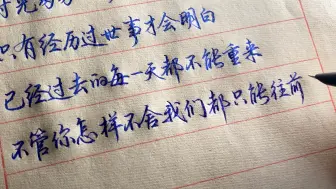 只有经历过世事才会明白
已经过去的每一天都不能重来
不管你怎样不舍我们都只能往前